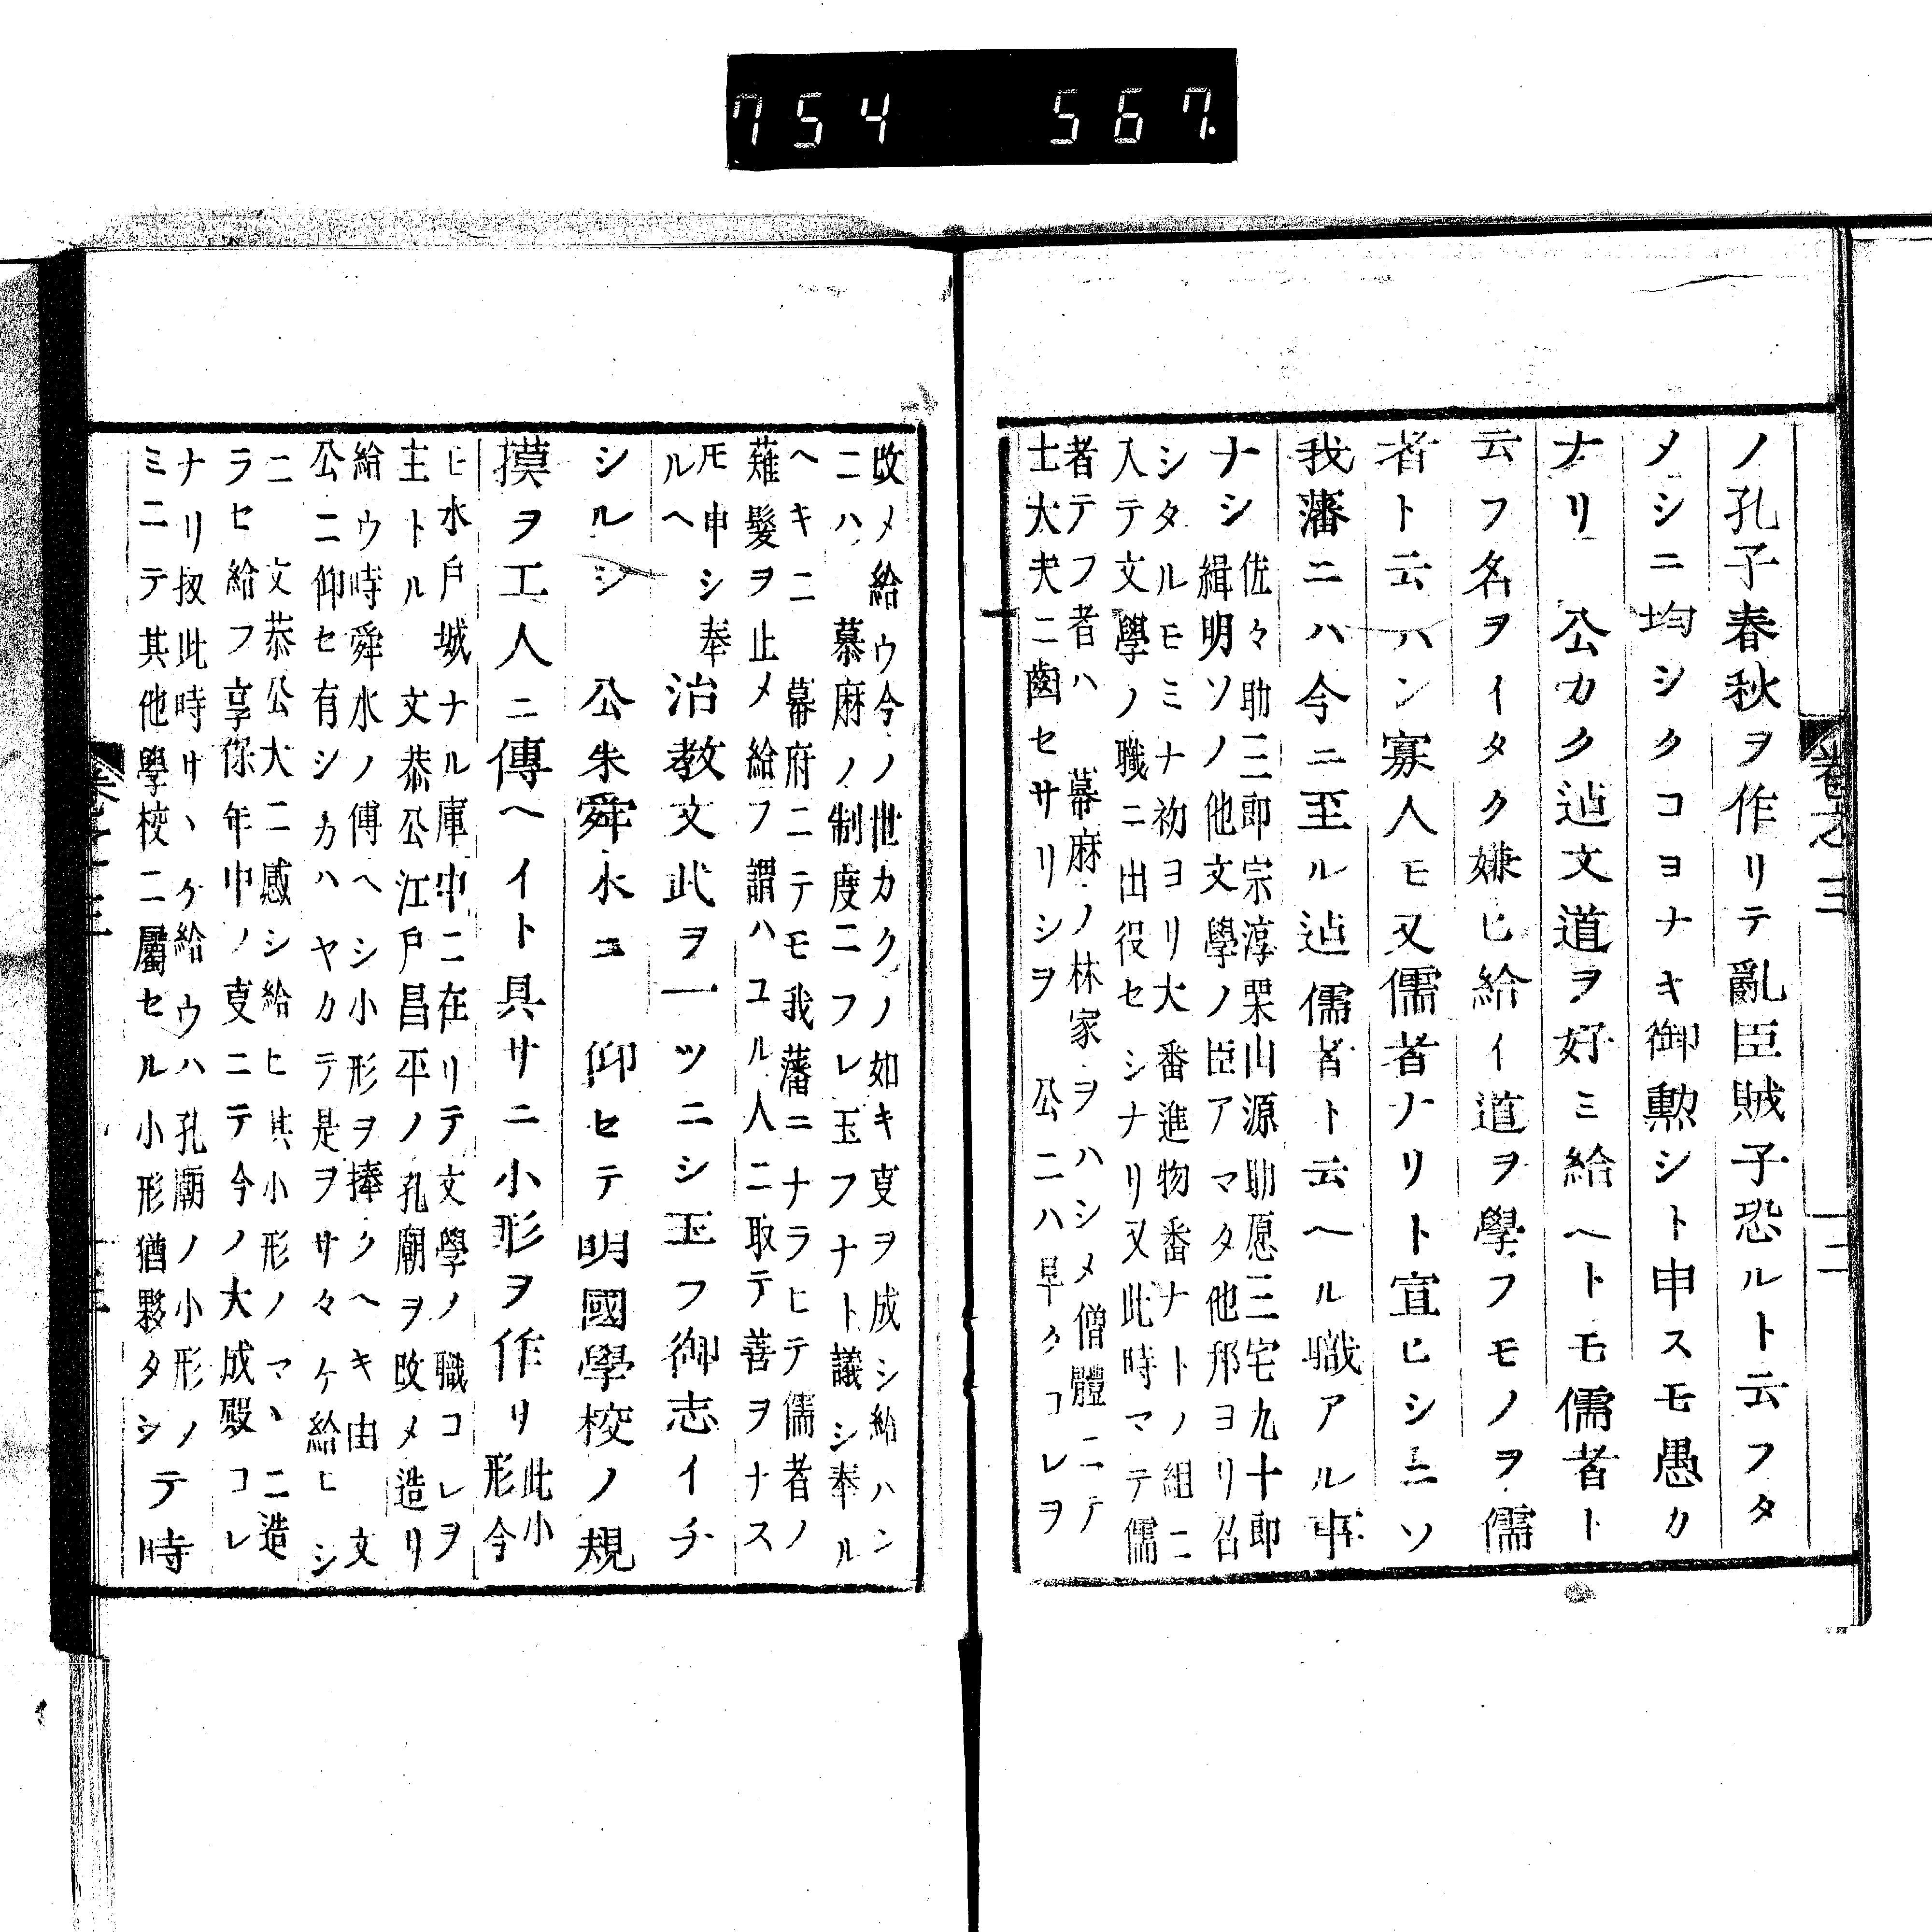 754 567.
卷之三
二
ノ孔子春秋ヲ作リテ亂臣賊子恐ルト云フタ
メシニ均シクコヨナキ御勲シト申スモ愚カ
ナリ 公カク迠文道ヲ好ミ給ヘトモ儒者ト
云フ名ヲイタク嫌ヒ給イ道ヲ學フモノヲ儒
者ト云ハン寡人モ又儒者ナリト宣ヒシニソ
我藩ニハ今ニ至ル迠儒者ト云ヘル職アル事
ナシ
佐々助三郎宗淳栗山源助愿三宅九十郎
緝明ソノ他文學ノ臣アマタ他邦ヨリ召
シタルモミナ初ヨリ大番進物番ナトノ組ニ
入テ文學ノ職ニ出役セシナリ又此時マテ儒
者テフ者ハ 幕府ノ林家ヲハシメ僧體ニテ
士大夫ニ齒セサリシヲ 公ニハ早クコレヲ
改メ給ウ今ノ世カクノ如キ叓ヲ成シ給ハン
ニハ 幕府ノ制度ニフレ玉フナト議シ奉ル
ヘキニ 幕府ニテモ我藩ニナラヒテ儒者ノ
薙髮ヲ止メ給フ謂ハユル人ニ取テ善ヲナス
𪜈申シ奉
ルヘ
シ 治教文武ヲ一ツニシ玉フ御志イチ
シルシ 公朱舜水ニ 仰セテ明國學校ノ規
摸ヲ工人ニ傳ヘイト具サニ小形ヲ作リ
此小
形今
ヒ水戶城ナル庫中ニ在リテ文學ノ職コレヲ
主トル 文恭公江戶昌平ノ孔廟ヲ改メ造リ
給ウ時舜水ノ傳ヘシ小形ヲ捧クヘキ由 文
公ニ仰セ有シカハヤカテ是ヲサヽケ給ヒシ
ニ 文恭公大ニ感シ給ヒ其小形ノマヽニ造
ラセ給フ享保年中ノ叓ニテ今ノ大成殿コレ
ナリ扨此時サヽケ給ウハ孔廟ノ小形ノ
ミニテ其他學校ニ屬セル小形猶夥タシテ時
卷之三